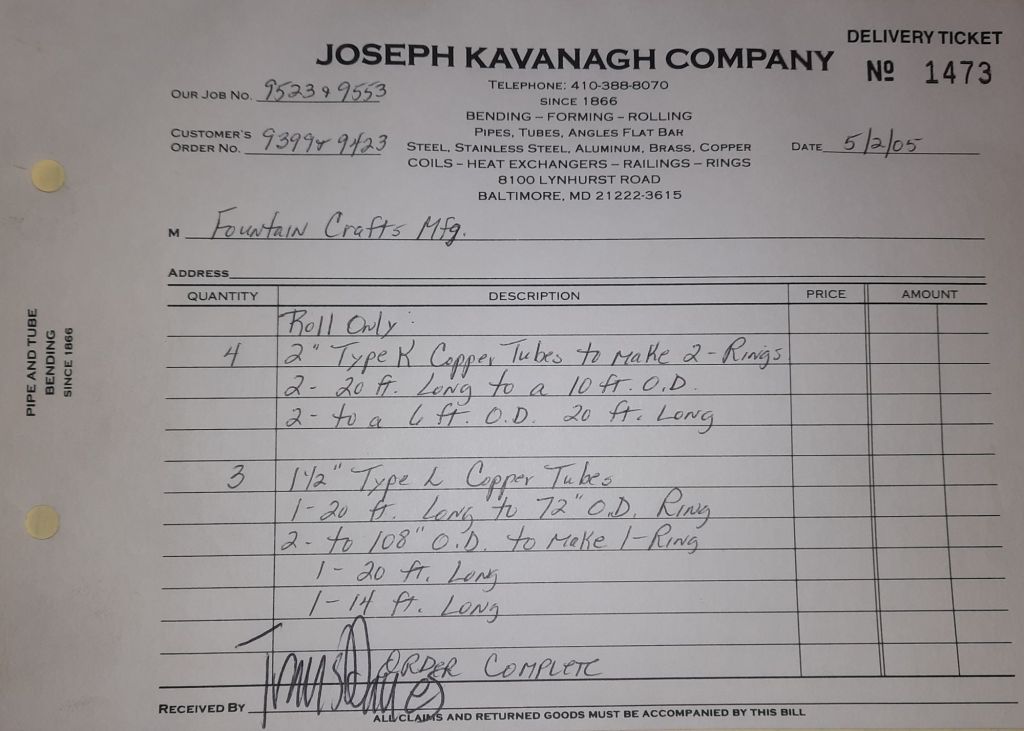 DELIVERY TICKET
JOSEPH KAVANAGH COMPANY
Nº 1473
TELEPHONE: 410-388-8070
SINCE 1866
BENDING – FORMING – ROLLING
PIPES, TUBES, ANGLES FLAT BAR
STEEL, STAINLESS STEEL, ALUMINUM, BRASS, COPPER
COILS – HEAT EXCHANGERS – RAILINGS – RINGS
8100 LYNHURST ROAD
BALTIMORE, MD 21222-3615
OUR JOB NO. 9523 & 9553
CUSTOMER'S
ORDER NO. 9399 & 9423
DATE 5/2/05
M Fountain Crafts Mfg.
ADDRESS
QUANTITY DESCRIPTION PRICE AMOUNT
Roll Only:
4 2" Type K Copper Tubes to Make 2-Rings
2- 20 ft. Long to a 10 ft. O.D.
2- to a 6 ft. O.D. 20 ft. Long
3 1 1/2" Type L Copper Tubes
1-20 ft. Long to 72" O.D. Ring
2- to 108" O.D. to Make 1-Ring
1- 20 ft. Long
1-14 ft. Long
ORDER COMPLETE
RECEIVED BY
ALL CLAIMS AND RETURNED GOODS MUST BE ACCOMPANIED BY THIS BILL
PIPE AND TUBE
BENDING
SINCE 1866